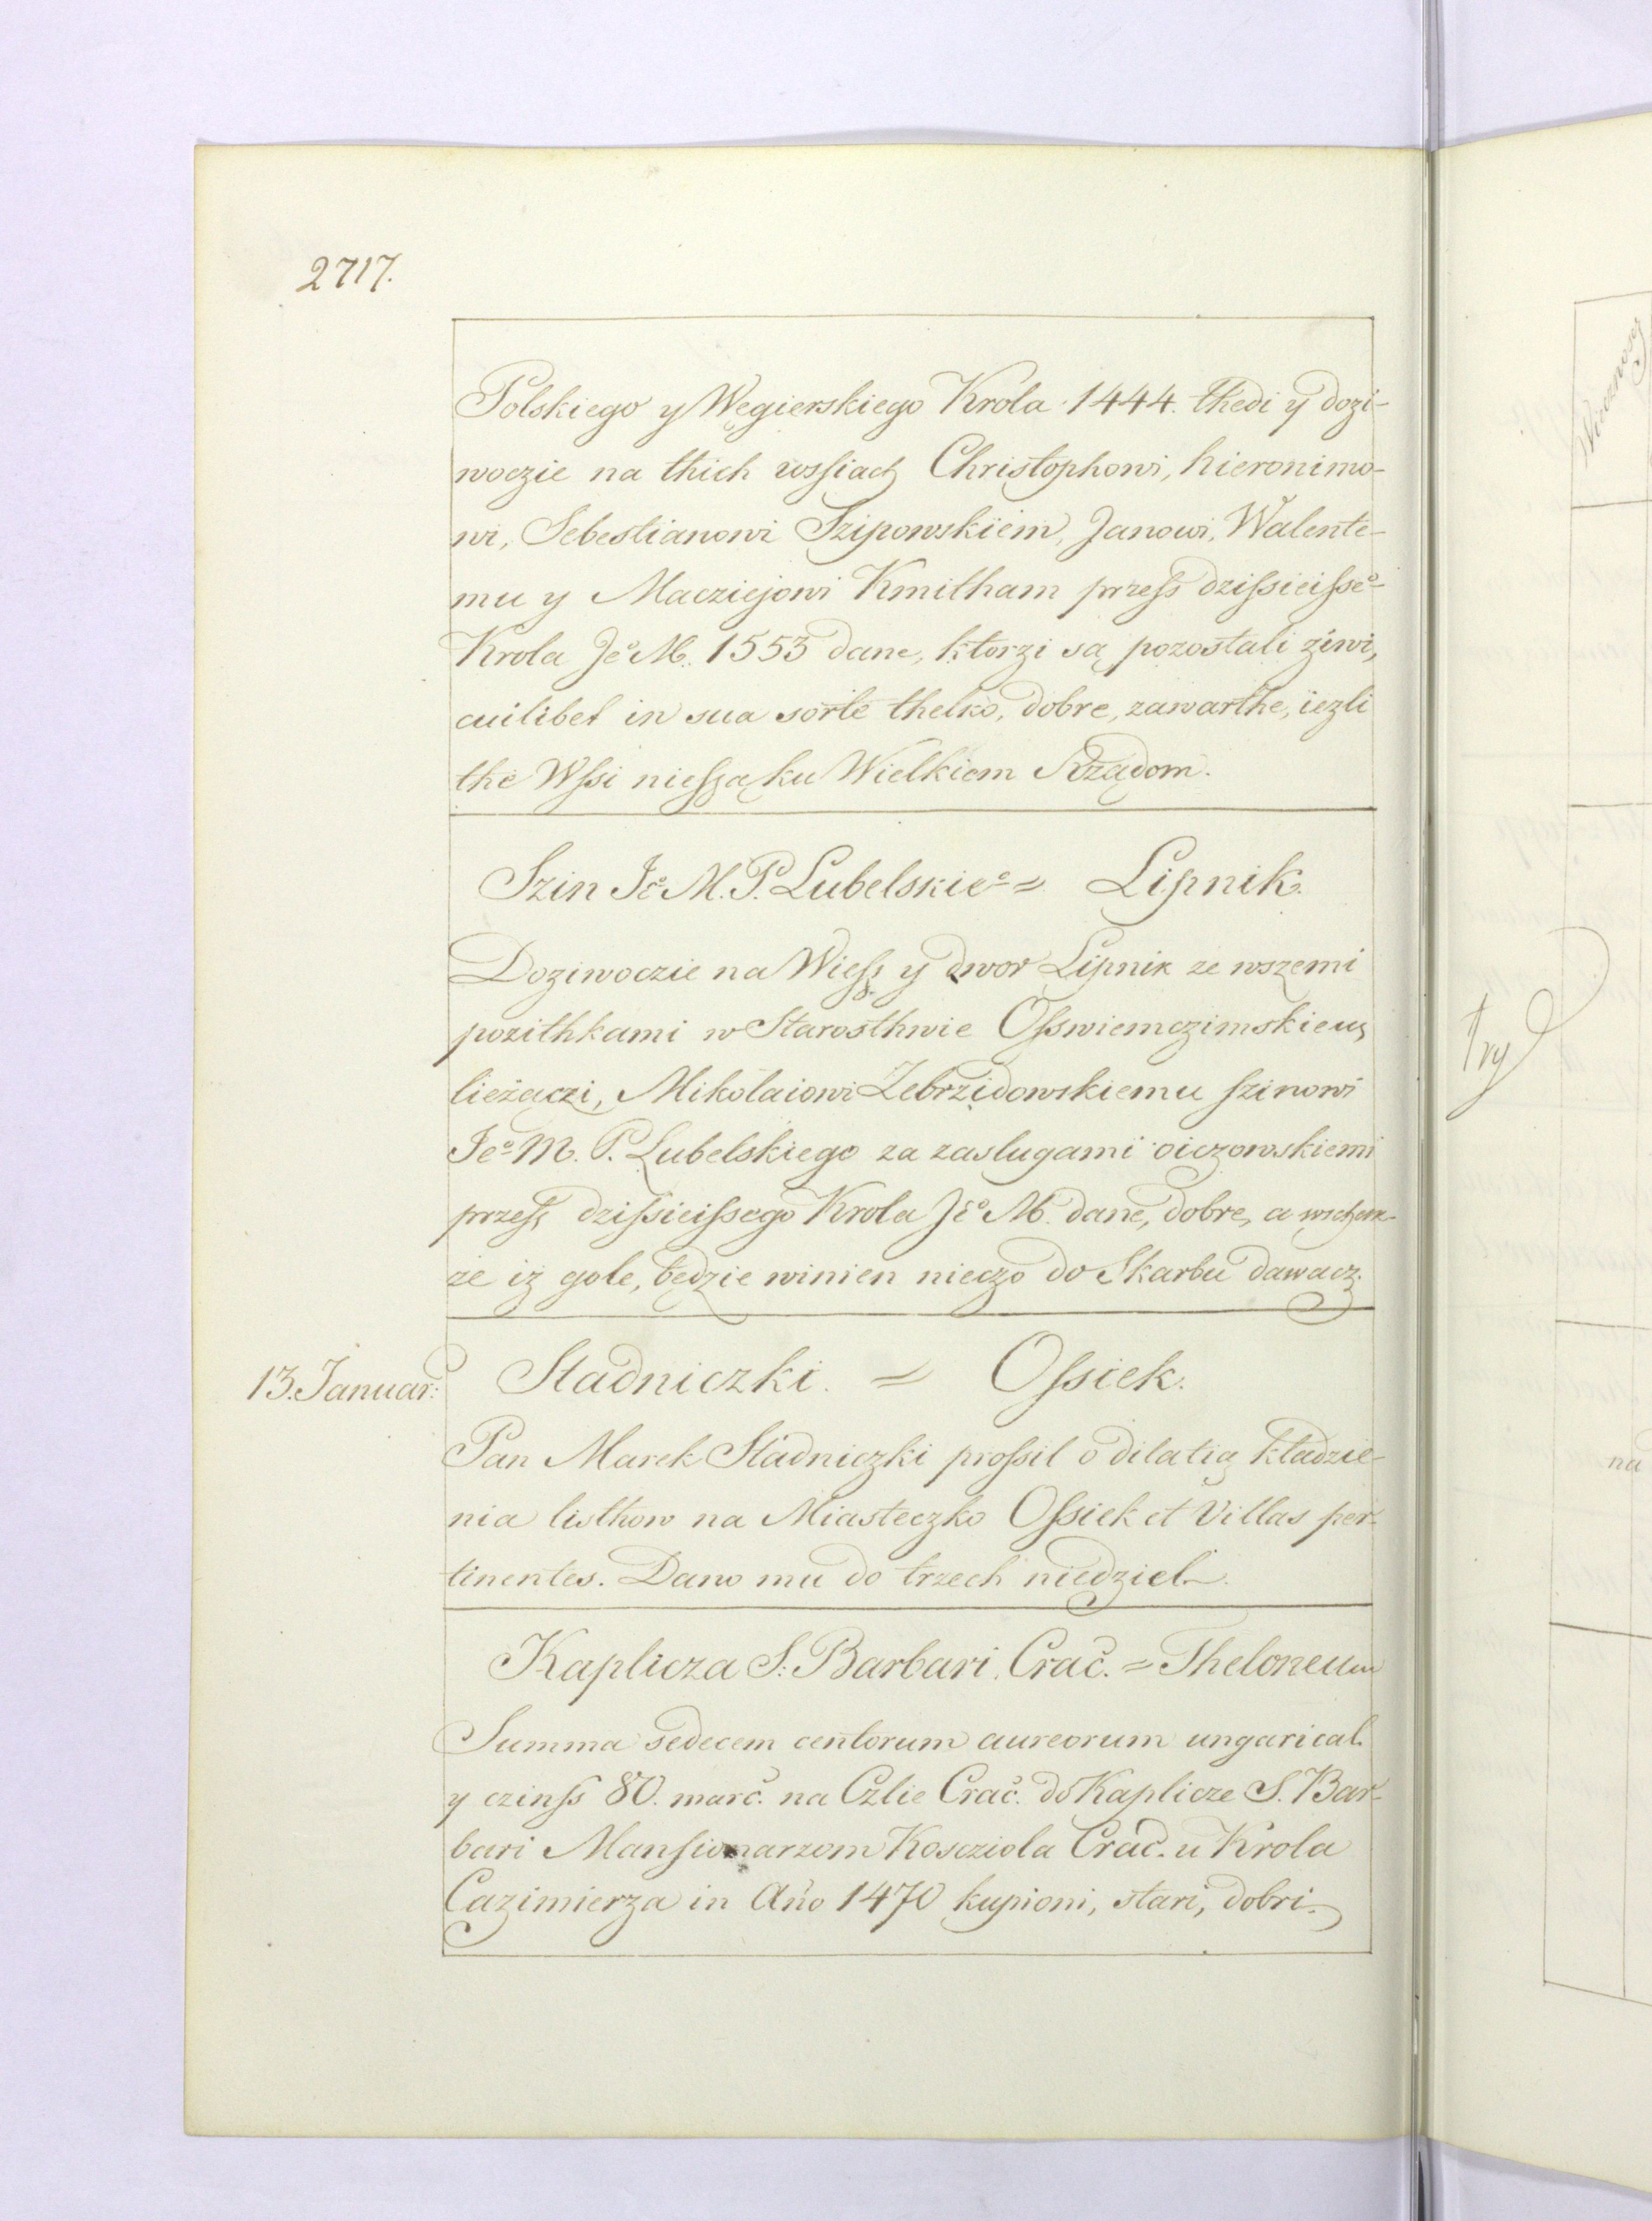 2717.
Polskiego y Węgierskiego Krola 1444. thedi y dozi-
woczie na thich wssiach Christophowi, hieronimo-
wi, Sebestianowi Szipowskiem, Janowi, Walente-
mu y Macziejowi Kmitham przess dzissieisseo
Krola Jeo M. 1553 dane, ktorzi są pozostali ziwi,
cuilibet in sua sorte thelko, dobre, zawarthe, iezli
the Wssi niesszą ku Wielkiem Rządom.
Szin Jeo M. P. Lubelskieo = Lipnik.
Doziwoczie na Wiess y dwor Lipnik ze wszemi
pozithkami w Starosthwie Osswiemczimskiem
lieżączi, Mikolaiowi Zebrzidowskiemu szinowi
Jeo M. P. Lubelskiego za zaslugami oiczowskiemi
przess dzissieissego Krola Jeo M. dane, dobre, a
ze iz gole, będzie winien nieczo do Skarbu dawacz.
13. Januar:
Stadniczki. = Ossiek.
Pan Marek Stadniczki prossil o dilatią kladzie-
nia listhow na Miasteczko Ossiek et Villas per-
tinentes. Dano mu do trzech niedziel.
Kaplicza S. Barbari Crac. = Theloneum
Summa sedecem centorum aureorum ungarical.
y czinss 80. marc. na Czlie Crac. do Kaplicze S. Bar-
bari Mansionarzom Kosczioła Crac. u Krola
Cazimierza in Año 1470 kupioni, stari, dobri.
na